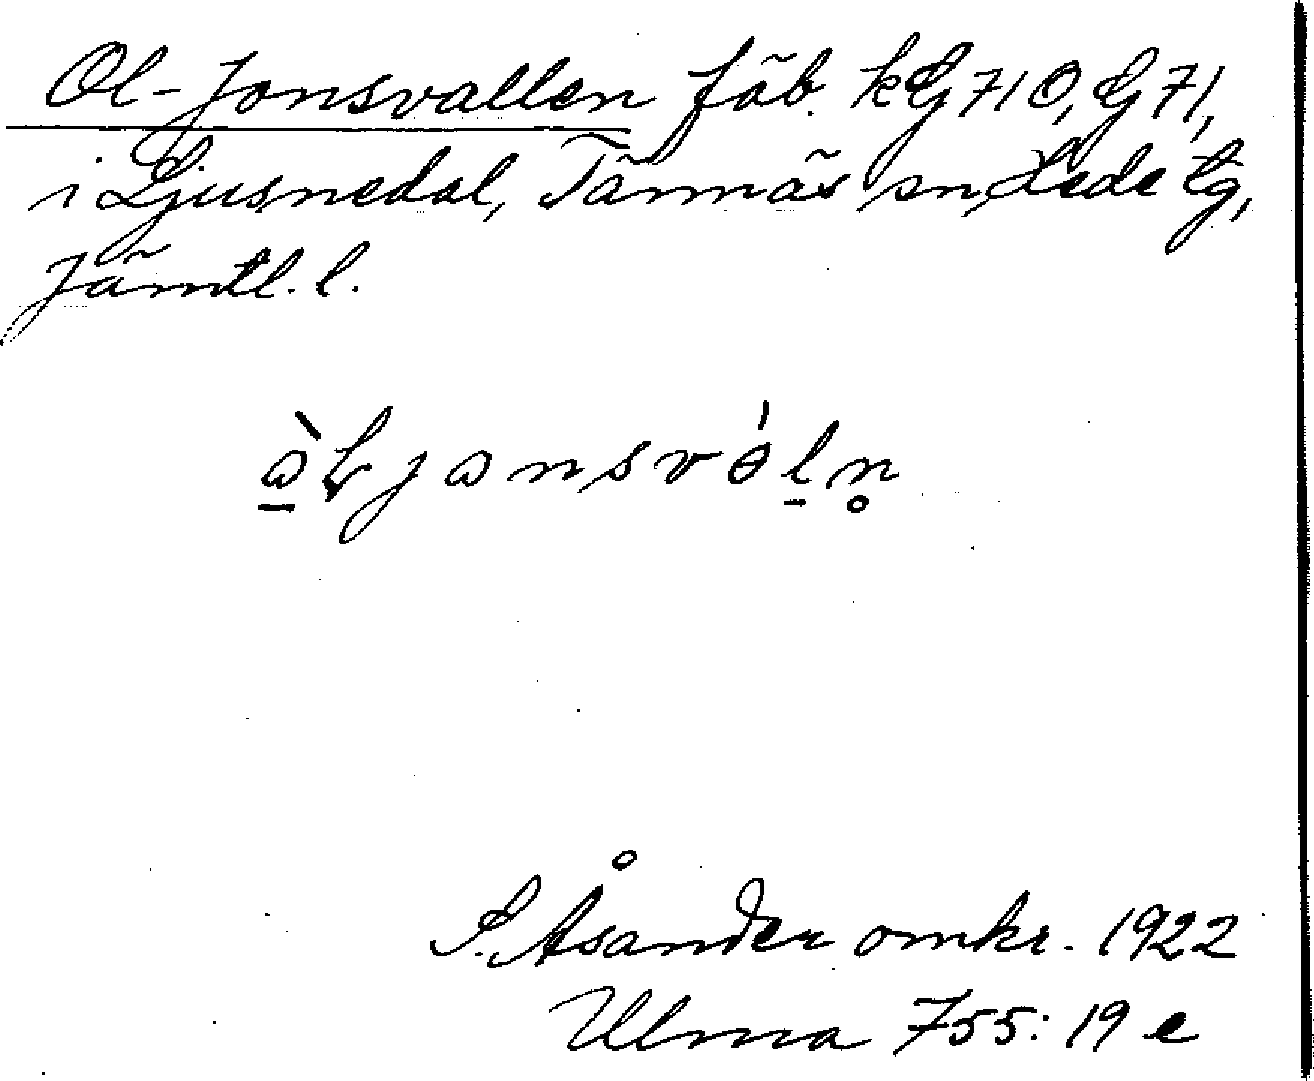 Ol-Jonsvallen fäb. kG 710, G 71,
i Ljusnedal, Tännäs sn, Hede tg,
Jämtl. l.
S. Åsander omkr. 1922
Ulma 755: 19 e